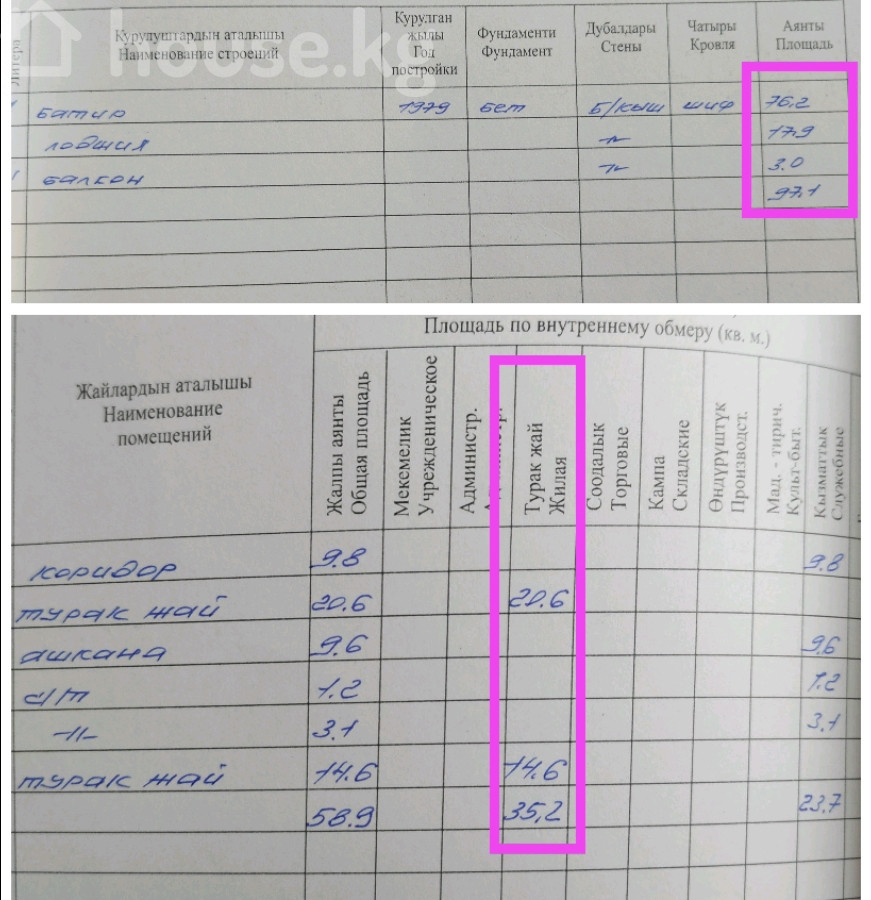 house.kg
Литера
Курулуштардын аталышы
Наименование строений
Курулган
жылы
Год
постройки
Фундаменти
Фундамент
Дубалдары
Стены
Чатыры
Кровля
Аянты
Площадь
батир 1979 бет Б/кыш шиф 76,2
лоджия -//- 17,9
балкон -//- 3.0
97.1
Площадь по внутреннему обмеру (кв. м.)
Жайлардын аталышы
Наименование
помещений
Жалпы аянты
Общая площадь
Мекемелик
Учрежденическое
Администр.
Турак жай
Жилая
Соодалык
Торговые
Кампа
Складские
Өндүрүштүк
Производст.
Мад. - тирич.
Культ-быт.
Кызматтык
Служебные
коридор 9.8 9.8
турак жай 20.6 20.6
ашкана 9.6 9.6
с/т 1.2 1.2
-//- 3.1 3.1
турак жай 14.6 14.6
58.9 35,2 23.7